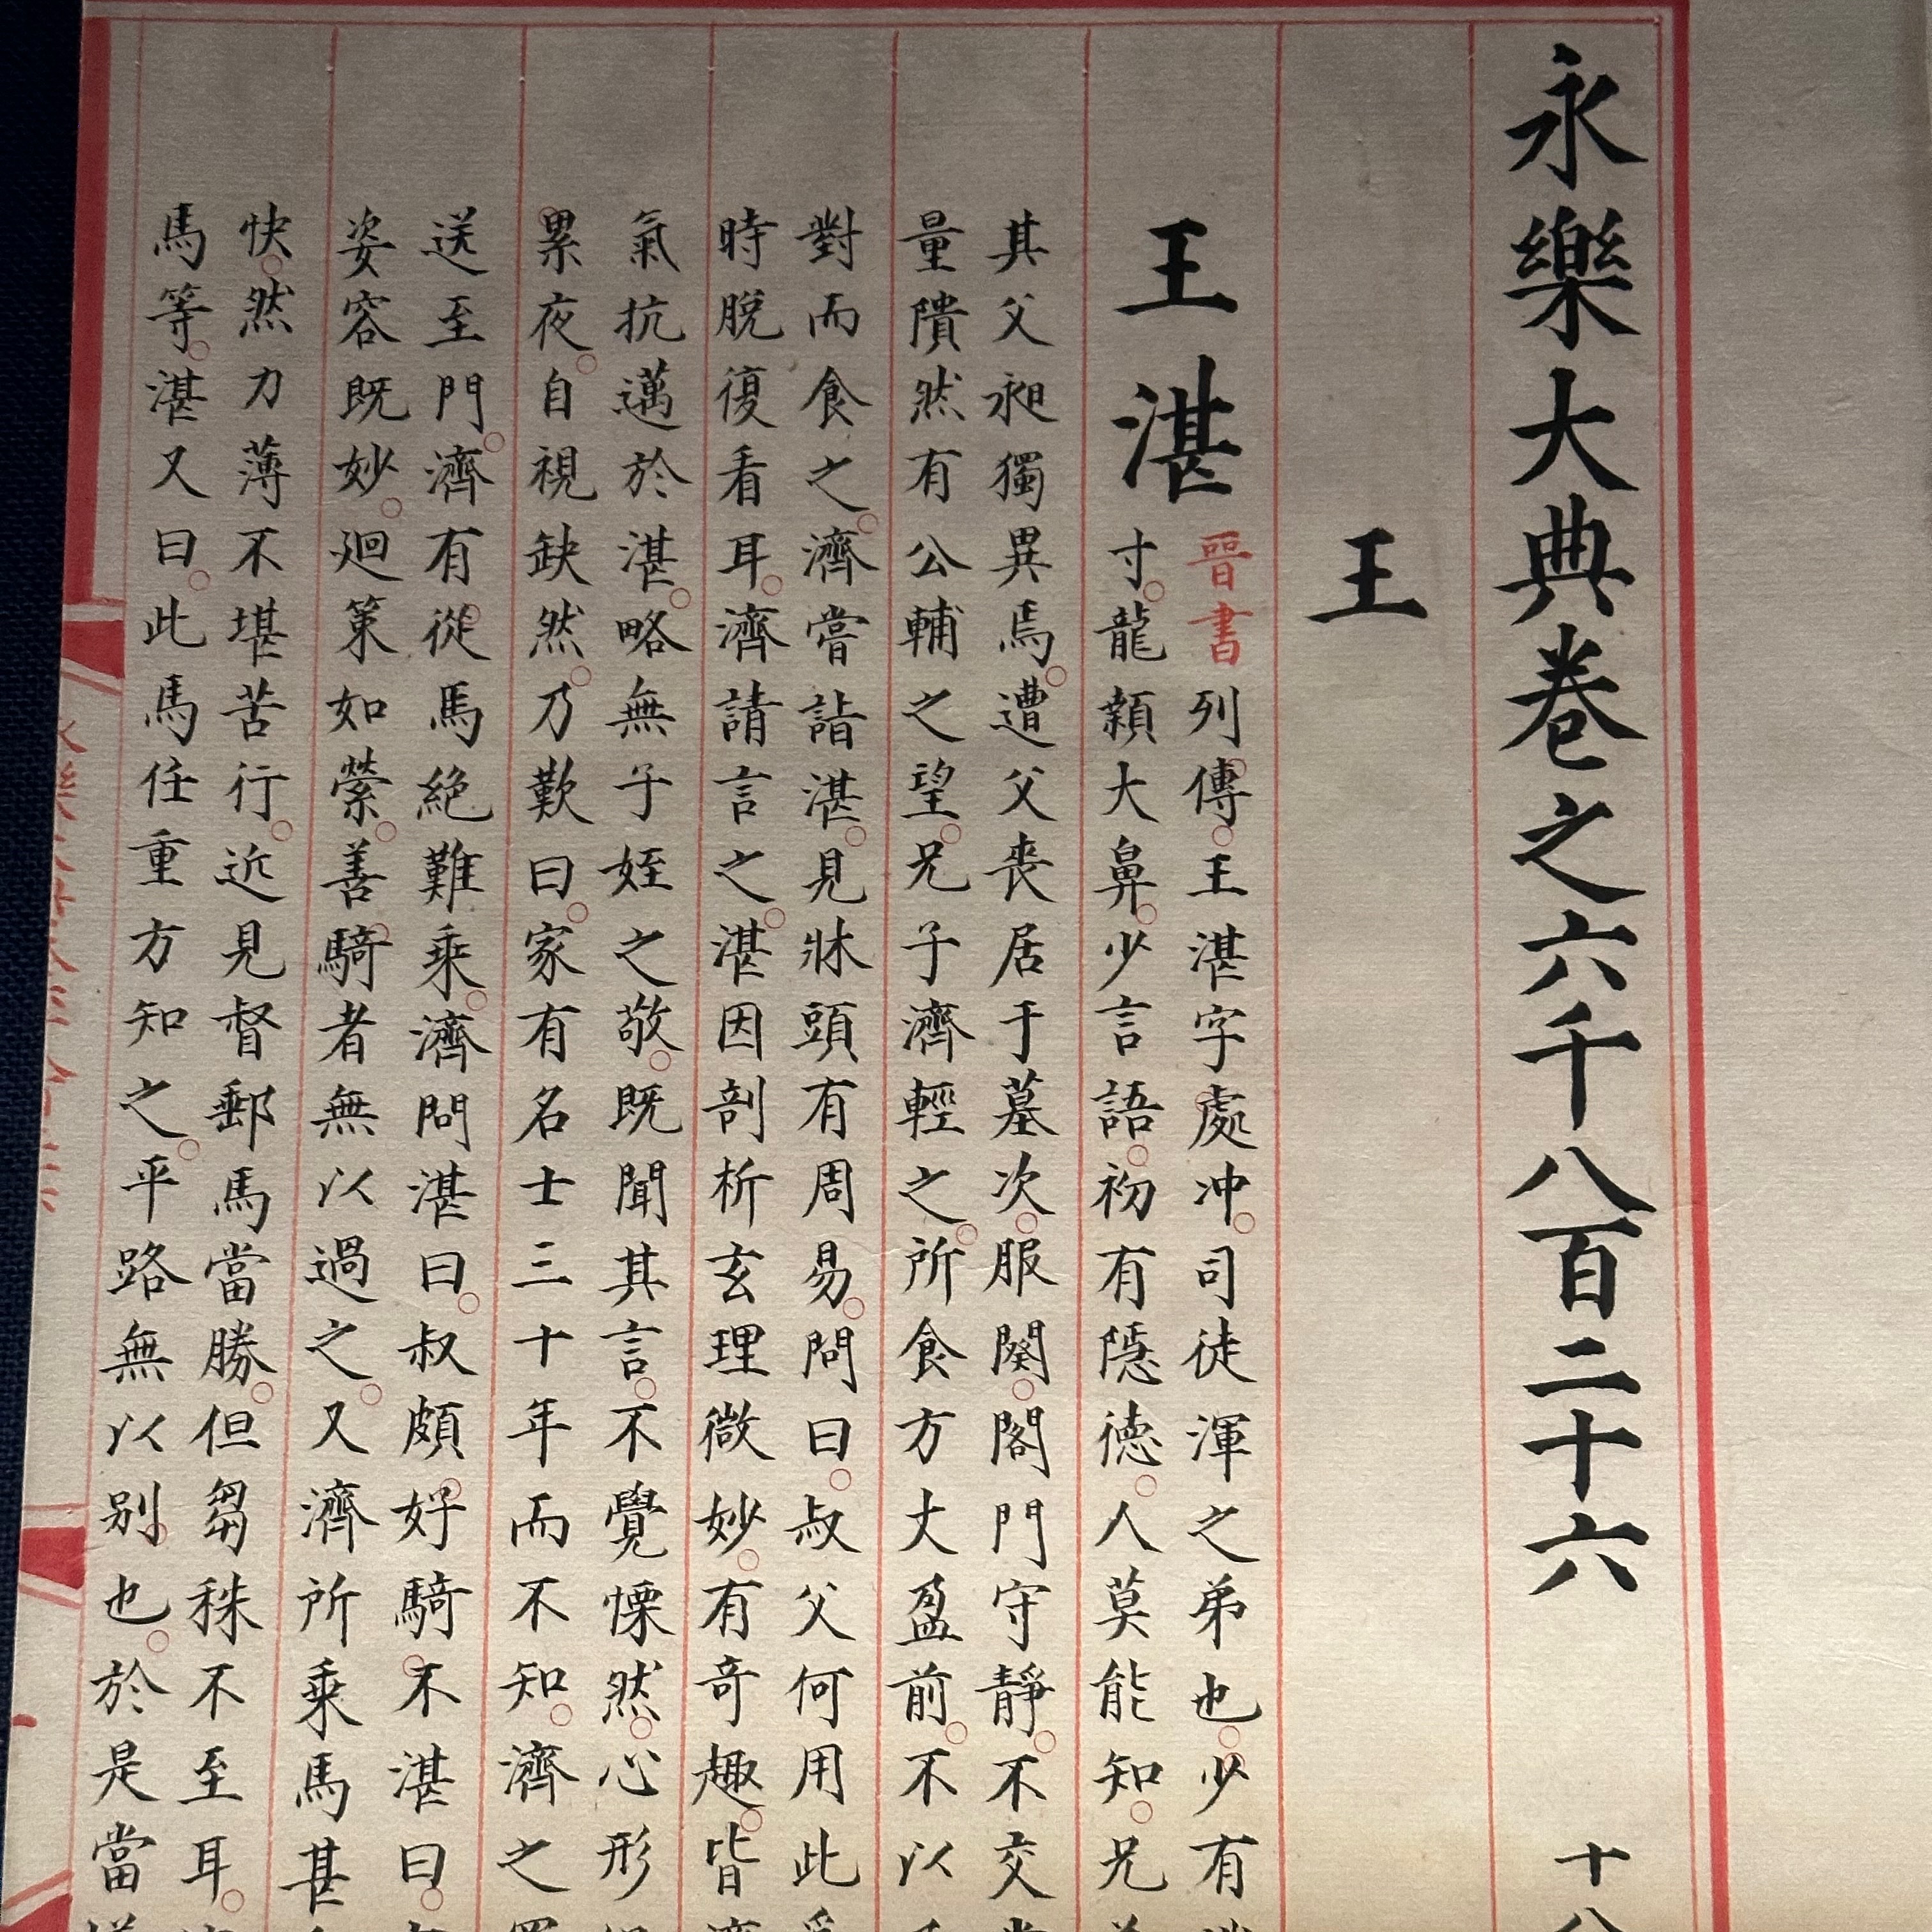 永樂大典卷之六千八百二十六
十八
王
王湛
晉書列傳王湛字處冲司徒渾之弟也少有
寸龍顙大鼻少言語初有隱德人莫能知兄
其父昶獨異焉遭父喪居于墓次服闋闔門守靜不交
量隤然有公輔之望兄子濟輕之所食方丈盈前不以
對而食之濟嘗詣湛見牀頭有周易問曰叔父何用此
時脫復看耳濟請言之湛因剖析玄理微妙有奇趣皆
氣抗邁於湛略無子姪之敬既聞其言不覺慄然心形
累夜自視缺然乃歎曰家有名士三十年而不知濟之
送至門濟有從馬絕難乘濟問湛曰叔頗好騎不湛曰
姿容既妙廻策如縈善騎者無以過之又濟所乘馬甚
快然力薄不堪苦行近見督郵馬當勝但芻秣不至耳
馬等湛又曰此馬任重方知之平路無以别也於是當